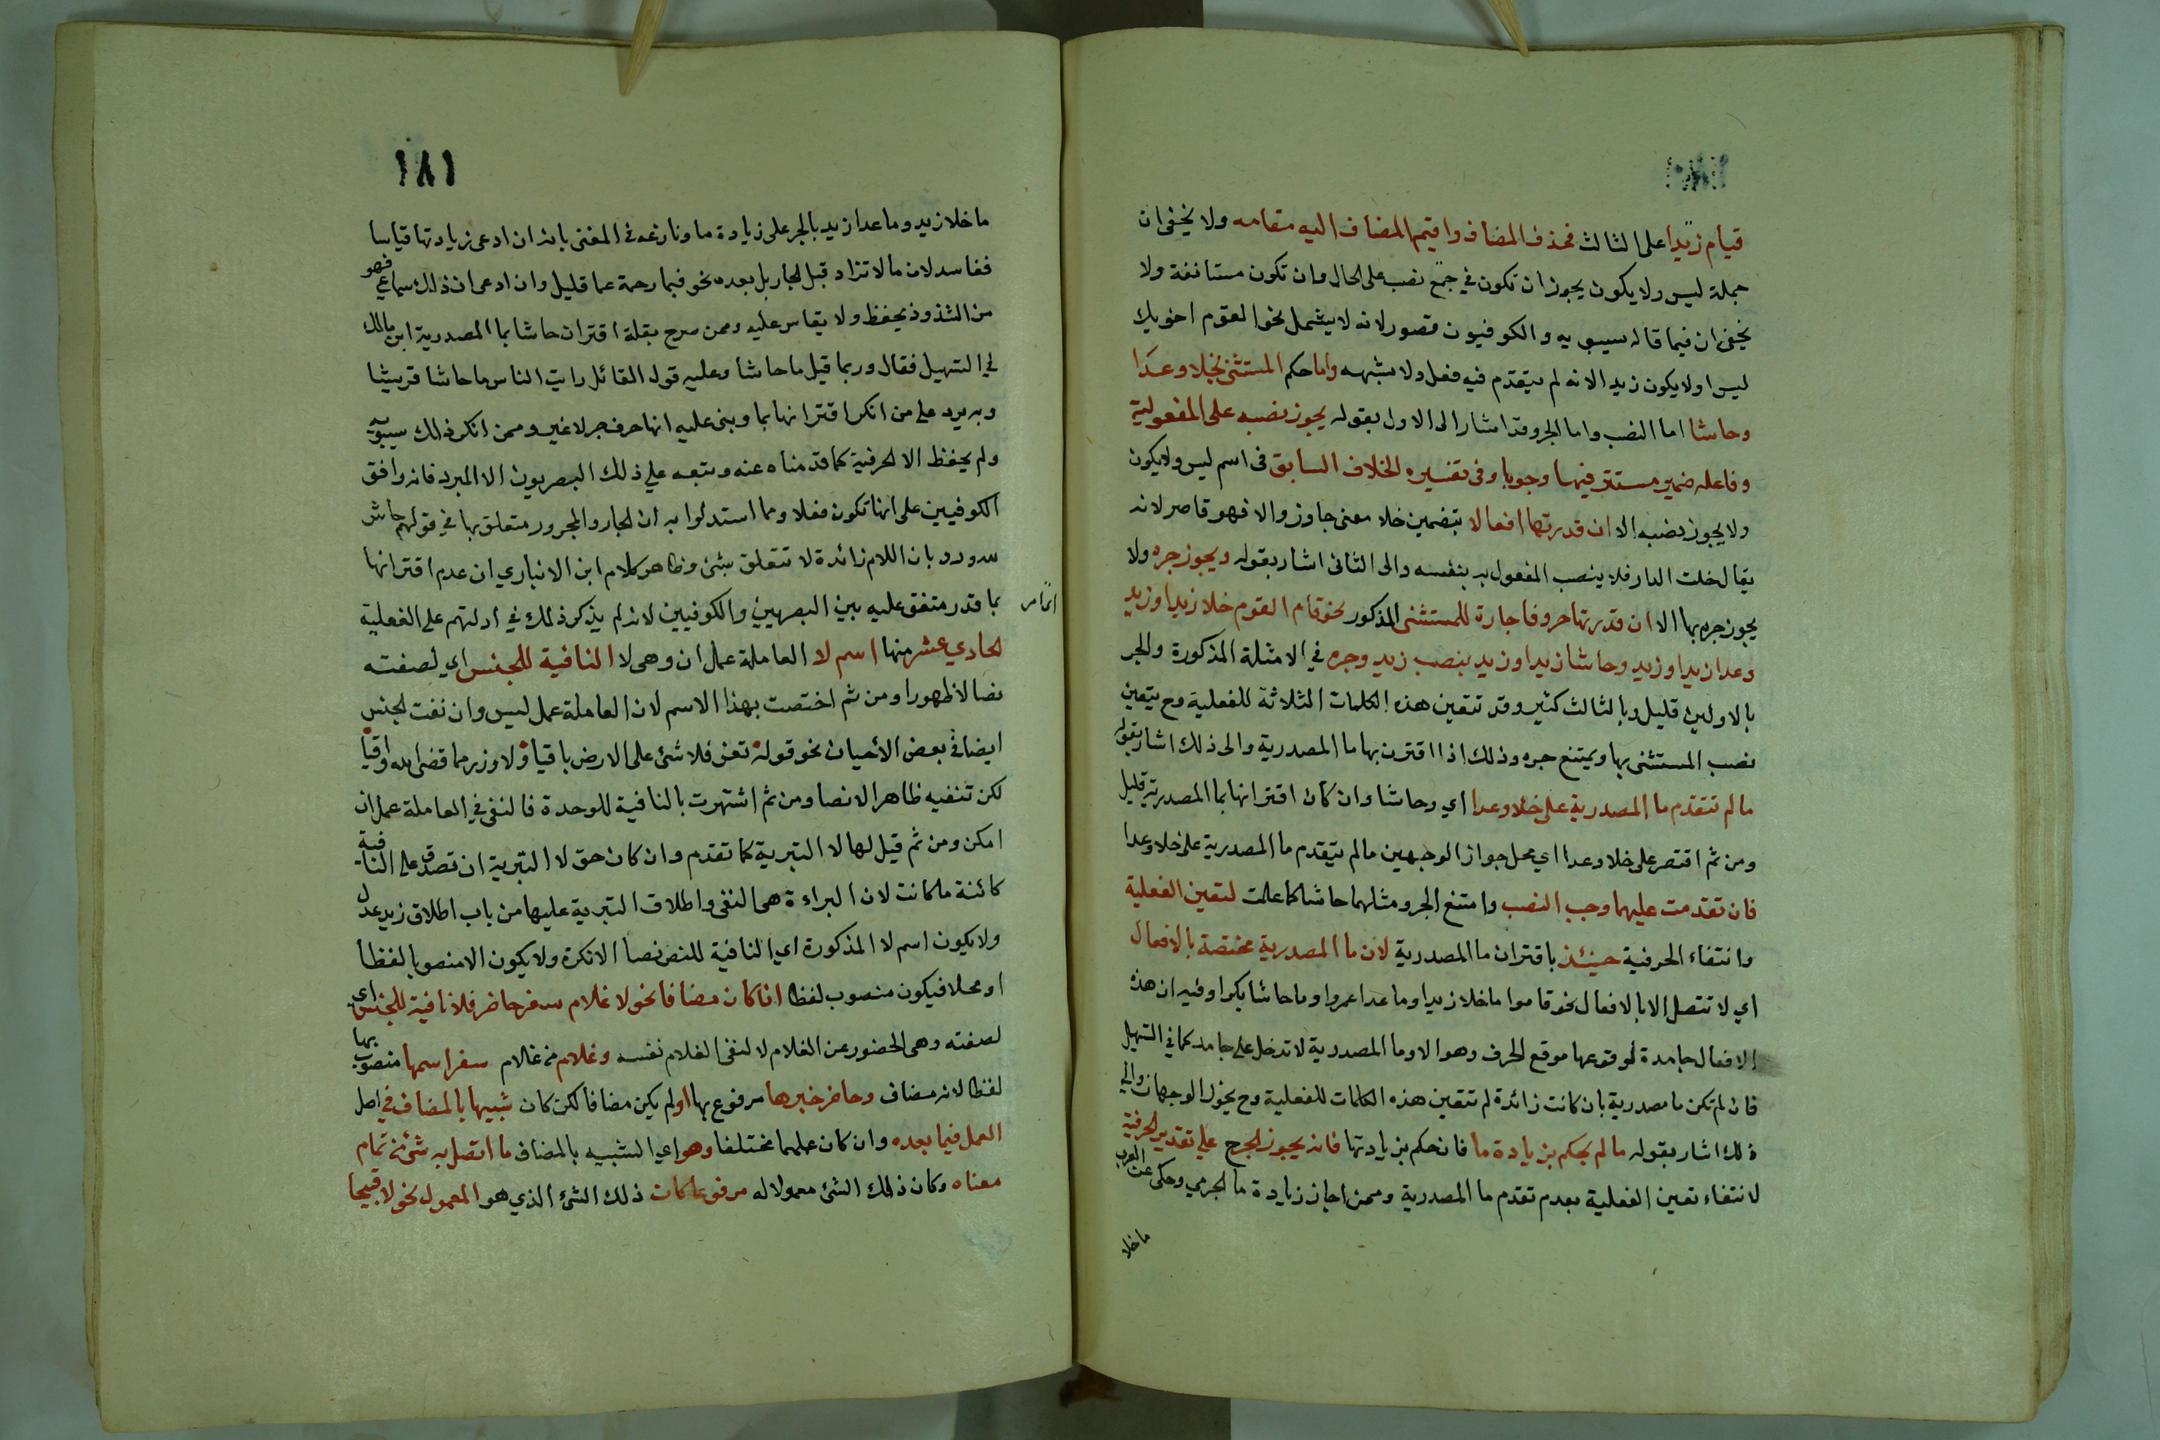 قيام زيدا على الثالث فحذف المضاف واقيم المضاف اليه مقامه ولا يخفى ان
جملة ليس ولا يكون يجوز ان تكون في نصب على الحال وان تكون مستانفة ولا
يخفى ان فيما قاله سيبويه والكوفيون قصور لانه لا يشمل نحو القوم اخويك
ليس اولا يكون زيد الانه لم يتقدم فيه فعل ولا شبهه واما حكم المستثنى بخلا وعدا
وحاشا اما النصب واما الجر وقد اشار الى الاول بقوله يجوز نصبه على المفعولية
وفاعله ضمير مستتر فيها وجوبا وفي تفسيره الخلاف السابق في اسم ليس ولا يكون
ولا يجوز نصبه الا ان قدرتها افعالا بتضمين خلا معنى جاوز والا فهو قاصر لانه
يقال خلت الدار فلا ينصب المفعول به بنفسه والى الثاني اشار بقوله ويجوز جره ولا
يجوز جره بها الا ان قدرتها حروفا جارة للمستثنى المذكور نحو قام القوم خلا زيدا وزيد
وعدا زيدا وزيد وحاشا زيدا وزيد بنصب زيد وجره في الامثلة المذكورة والجر
بالاولين قليل وبالثالث كثير وقد تتعين هذه الكلمات الثلاثة للفعلية وح يتعين
نصب المستثنى بها ويمتنع جره وذلك اذا اقترن بها ما المصدرية والى ذلك اشار بقوله
مالم تتقدم ما المصدرية على خلا وعدا اي وحاشا وان كان اقترانها بما المصدرية قليل
ومن ثم اقتصر على خلا وعدا اي محل جواز الوجهين مالم يتقدم ما المصدرية على خلا وعدا
فان تقدمت عليهما وجب النصب وامتنع الجر ومثلهما حاشا كما علمت لتعين الفعلية
وانتفاء الحرفية حينئذ باقتران ما المصدرية لان ما المصدرية مختصة بالافعال
اي لا تتصل الا بالافعال نحو قاموا ما خلا زيدا وما عدا عمروا وما حاشا بكرا وفيه ان هذه
الافعال جامدة لوقوعها موقع الحرف وهو الا وما المصدرية لا تدخل على جامد كما في التسهيل
فان لم تكن ما مصدرية بان كانت زائدة لم تتعين هذه الكلمات للفعلية وح يجوز الوجهان والى
ذلك اشار بقوله مالم يحكم بزيادة ما فان حكم بزيادتها فانه يجوز الجر ح على تقدير الحرفية
لانتفاء تعين الفعلية بعدم تقدم ما المصدرية وممن اجاز زيادة ما الجرمي وحكى عن العرب
ما خلا
١٨١
ما خلا زيد وما عدا زيد بالجر على زيادة ما ونازعه في المغني بانه ان ادعى زيادتها قياسا
ففاسد لان ما لا تزاد قبل الجار بل بعده نحو فبما رحمة عما قليل وان ادعى ان ذلك سماعي فهو
من الشذوذ يحفظ ولا يقاس عليه وممن صرح بقلة اقتران حاشا بما المصدرية ابن مالك
في التسهيل فقال وربما قيل ما حاشا وعليه قول القائل رايت الناس ما حاشا قريشا
وبه يرد على من انكر اقترانها بما وبنى عليه انها حرف جر لا غير وممن انكر ذلك سيبويه
ولم يحفظ الا الحرفية كما قدمناه عنه وتبعه على ذلك البصريون الا المبرد فانه وافق
الكوفيين على انها تكون فعلا ومما استدلوا به ان الجار والمجرور متعلق بها في قولهم حاش
لله ورد بان اللام زائدة لا تتعلق بشئ وظاهر كلام ابن الانباري ان عدم اقترانها
بما قدر متفق عليه بين البصريين والكوفيين لانه لم يذكر ذلك في ادلتهم على الفعلية
الحادي عشر منها اسم لا العاملة عمل ان وهي لا النافية للجنس اي لصفته
نصا لا ظهورا ومن ثم اختصت بهذا الاسم لان العاملة عمل ليس وان نفت الجنس
ايضا في بعض الأحيان نحو قوله تعز فلا شئ على الارض باقيا ولا وزر مما قضى الله واقيا
لكن تنفيه ظاهرا لا نصا ومن ثم اشتهرت بالنافية للوحدة فالنفي في العاملة عمل ان
امكن ومن ثم قيل لها لا التبرية كما تقدم وان كان حق لا التبرية ان تصدق على النافية
كائنة ما كانت لان البراءة هي النفي واطلاق التبرية عليها من باب اطلاق زيد عدل
ولا يكون اسم لا المذكورة اي النافية للنص نصا الا نكرة ولا يكون الا منصوبا لفظا
او محلا فيكون منصوب لفظا ان كان مضافا نحو لا غلام سفر حاضر فلا نافية للجنس اي
لصفته وهي الحضور عن الغلام لا لنفي الغلام نفسه وغلام من غلام سفر اسمها منصوب بها
لفظا لانه مضاف وحاضر خبرها مرفوع بها او لم يكن مضافا لكن كان شبيها بالمضاف في اصل
العمل فيما بعده وان كان عملهما مختلفا وهو اي الشبيه بالمضاف ما اتصل به شئ من تمام
معناه وكان ذلك الشئ معمولا له مرفوعا كان ذلك الشئ الذي هو المعمول نحو لا قبيحا